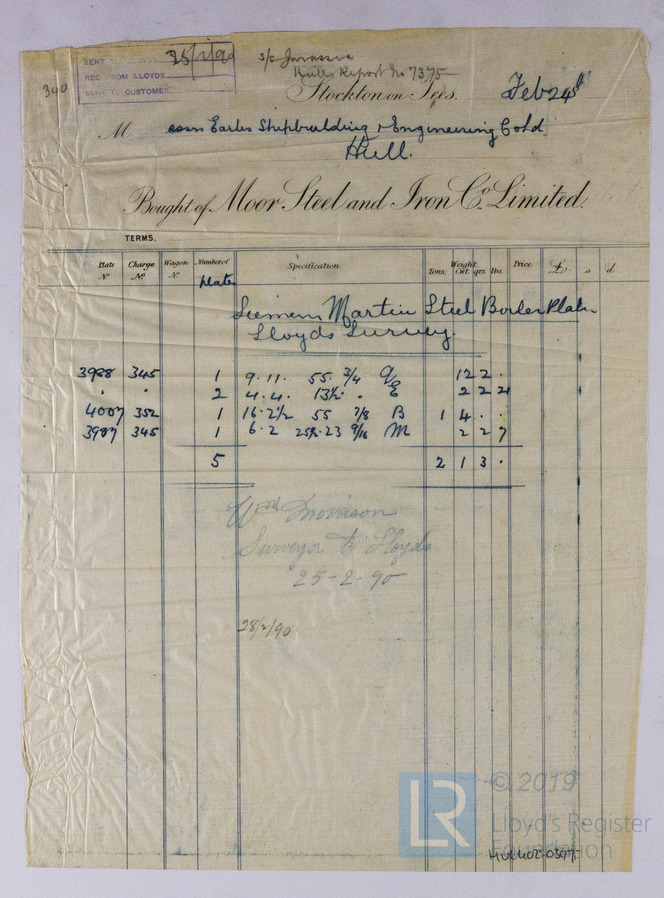 SENT TO LLOYDS 25/2/90
REC FROM LLOYDS
SENT TO CUSTOMER
340
Hull Report No 7375
Stockton on Tees. Feb 24th
M essrs Earles Shipbuilding & Engineering Co Ld
Hull.
Bought of Moor Steel and Iron Co. Limited.
TERMS.
Plate No. Charge No. Wagon No. Number of Plates Specification. Tons. Weight. Cwt. qrs. lbs. Price £ s d
Siemens Martin Steel Boiler Plates
Lloyds Survey.
3988 345 1 9.11. 55 3/4 12 2 .
" " 2 4.4. 13½ " E 2 2 21
4007 352 1 16.2½ 55 7/8 B 1 4 . .
3987 345 1 6.2 25½.23 9/16 M 2 2 7
5 2 1 3 .
Wm Morrison
Surveyor to Lloyds
25-2-90
28/2/90
LR
© 2019
Lloyd's Register
Foundation